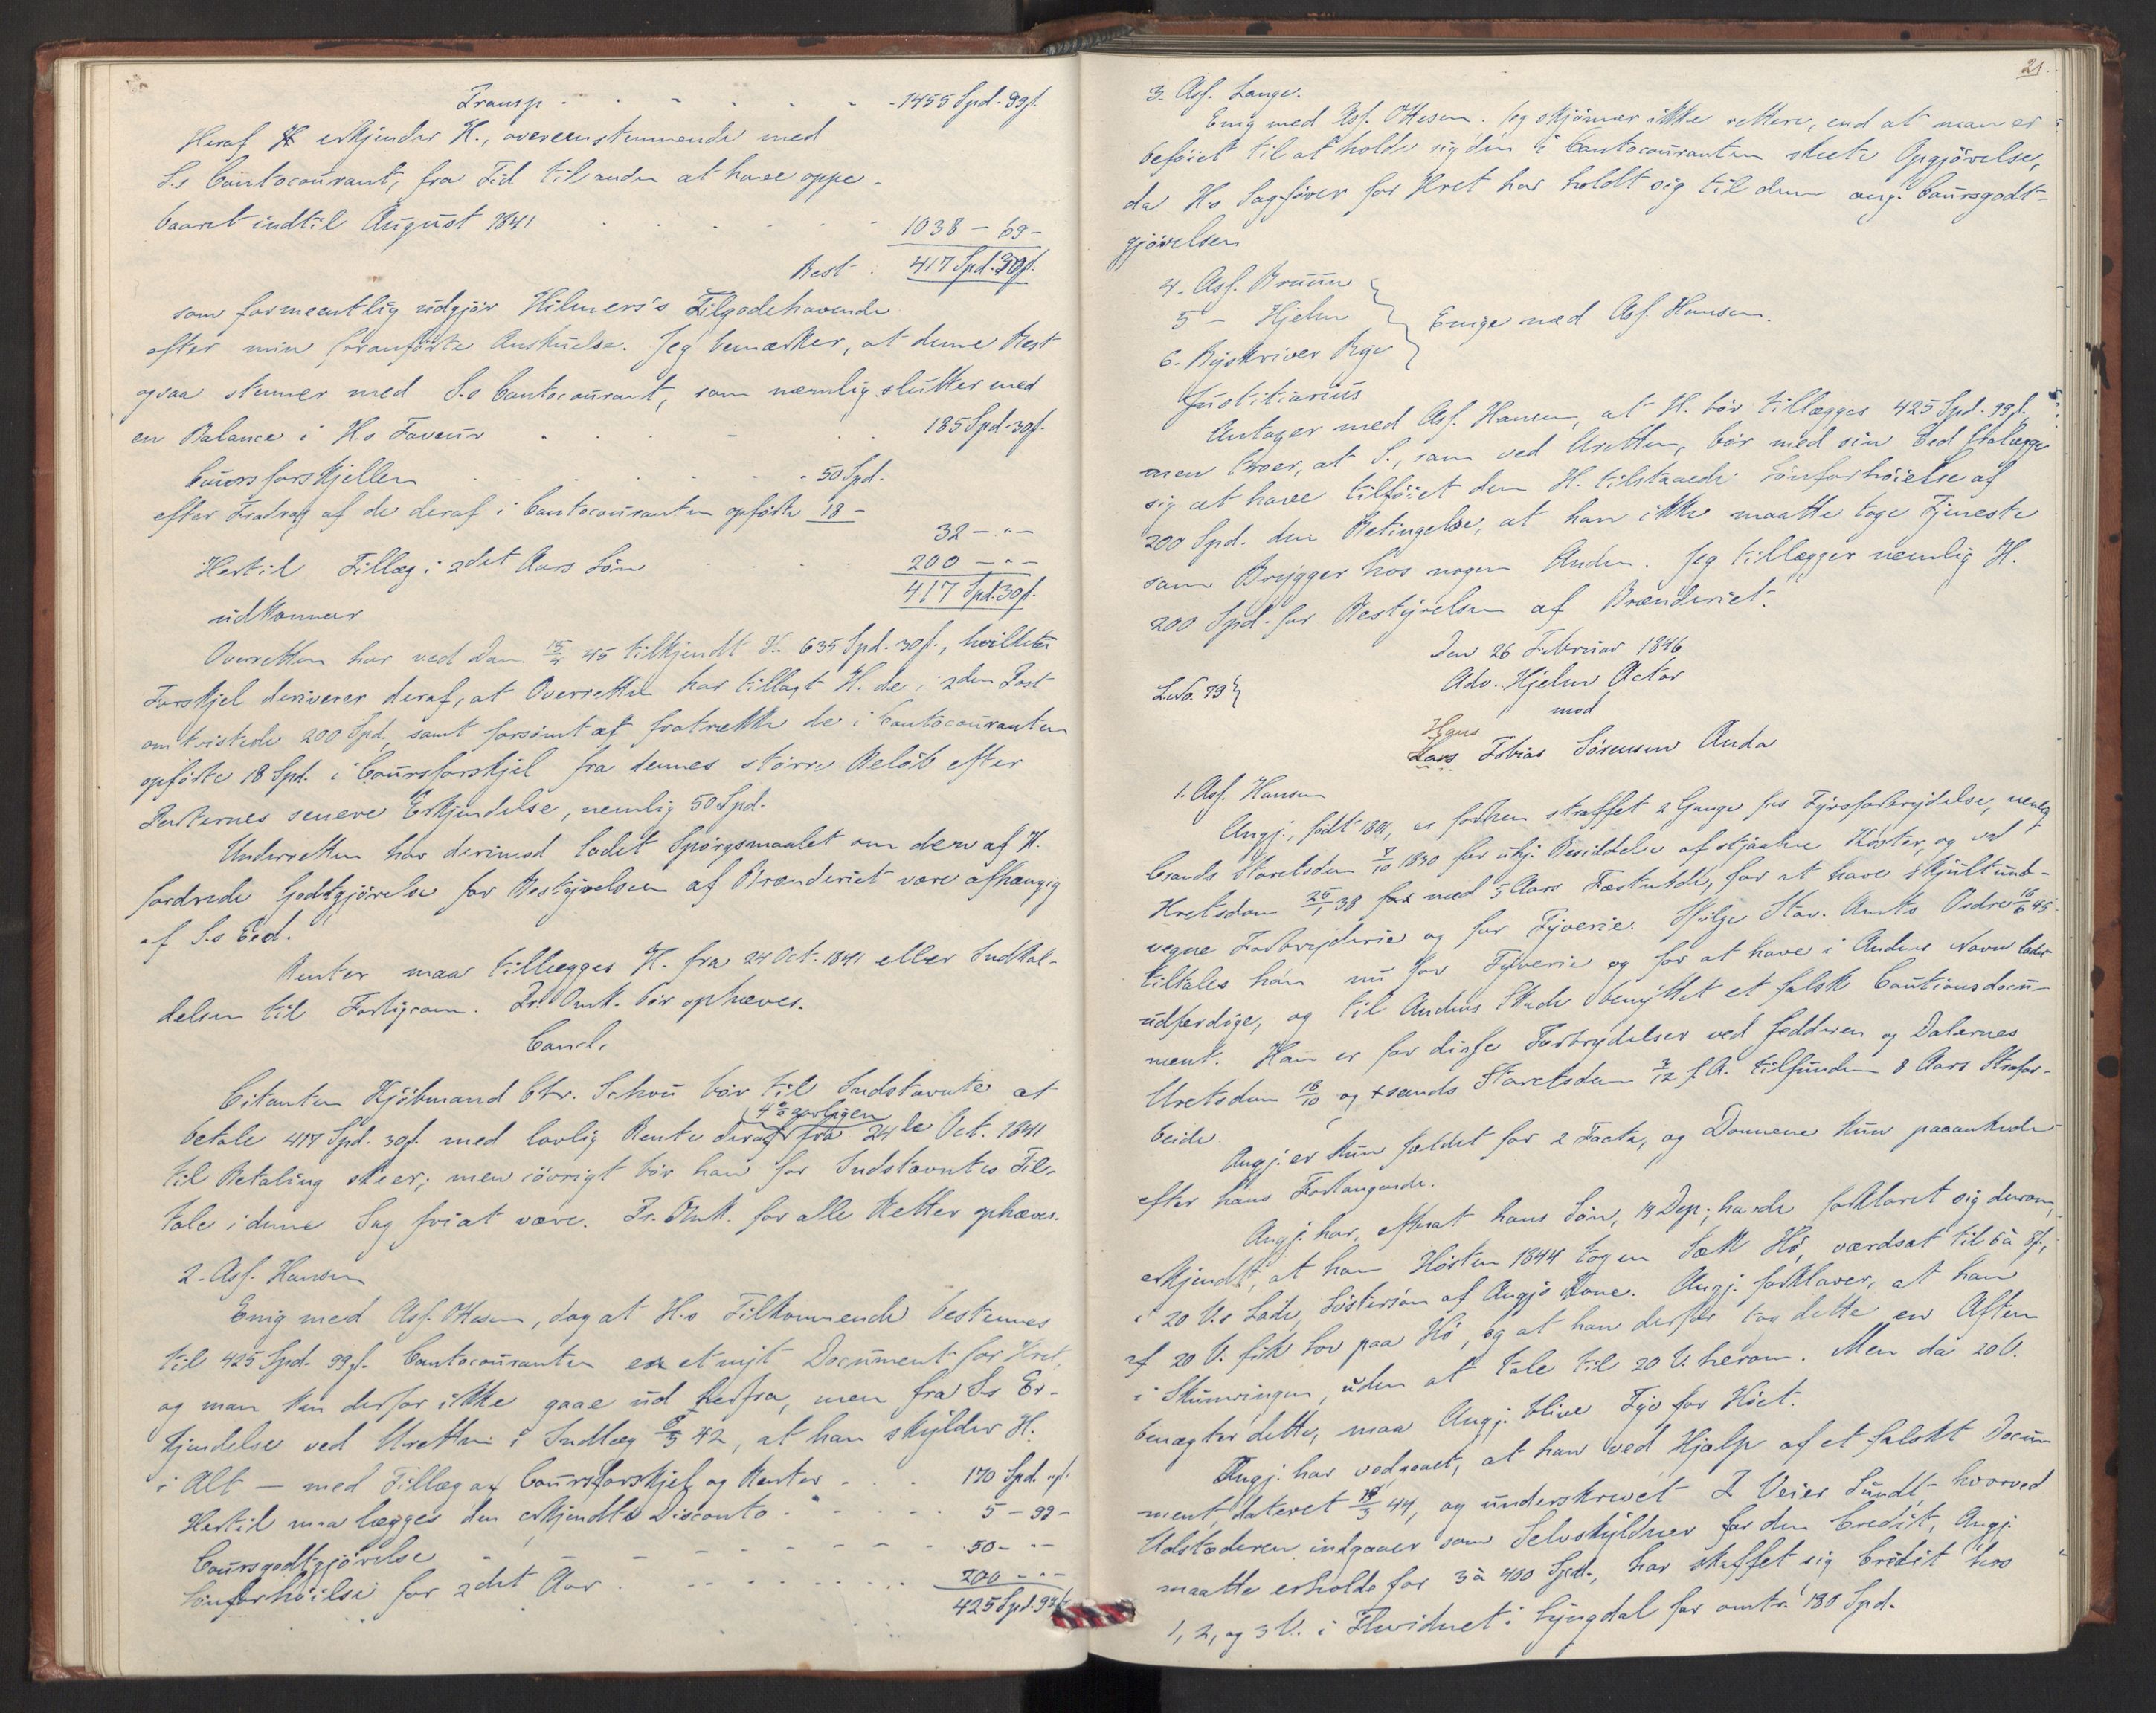 Transp. - - - - - 1455 Spd. 99 ß.
Heraf erkjender H., overeenstemmende med
S.s Contocourant, fra Tid til anden at have oppe-
baaret indtil August 1841 . . . . . 1038 - 69 -
Rest . 417 Spd. 30 ß.
som formeentlig udgjör Hilmers's Tilgodehavende
efter min foranförte Anskuelse. Jeg bemærker, at denne Rest
ogsaa stemmer med S.s Contocourant, som nemlig slutter med
en Balance i H.s Faveur . . . . 185 Spd. 30 ß.
Coursforskjellen . . . . . 50 Spd.
efter Fradrag af de deraf i Contocouranten opförte 18 -
32 - " -
Hertil Tillæg i 2det Aars Lön . . . . 200 - " -
udkommer 417 Spd. 30 ß.
Overretten har ved Dom 15/4 45 tilkjendt H. 635 Spd. 30 ß., hvilken
Forskjel deriverer deraf, at Overretten har tillagt H. de i 2den Post
omtvistede 200 Spd. samt forsömt at fratrække de i Contocouranten
opförte 18 Spd. i Coursforskjel fra dennes större Belöb efter
Parternes senere Erkjendelse, nemlig 50 Spd.
Underretten har derimod ladet Spörgsmaalet om den af H.
fordrede Godtgjörelse for Bestyrelsen af Brænderiet være afhængig
af S.s Eed.
Renter maa tillægges H. fra 24 Oct. 1841 eller Indkal-
delsen til Forligscom. Pr. Omk. bör ophæves.
Concl.
Citanten Kjöbmand Chr. Schou bör til Indstævnte at
betale 417 Spd. 30 ß. med lovlig Rente 4 % aarligen deraf fra 24de Oct. 1841
til Betaling skeer; men iövrigt bör han for Indstævntes Til-
tale i denne Sag fri at være. Pr. Omk. for alle Retter ophæves.
2. Ass. Hansen
Enig med Ass. Ottesen, dog at H.s Tilkommende bestemmes
til 425 Spd. 99 ß. Contocouranten er et nyt Document for Hret,
og man kan derfor ikke gaae ud herfra, men fra S.s Er-
kjendelse ved Uretten i Indlæg 42, at han skylder H.
i Alt - med Tillæg af Coursforskjel og Renter . . . 170 Spd. " ß.
Hertil maa lægges den erkjendte Disconto - - - - 5 - 99 -
Coursgodtgjörelse - - - - - - 50 - " -
Lönforhöielse for 2det Aar . - - - - - 200 - " -
425 Spd. 99 ß.
21.
3. Ass. Lange.
Enig med Ass. Ottesen. Jeg skjönner ikke rettere, end at man er
beföiet til at holde sig den i Contocouranten skete Opgjörelse,
da H.s Sagförer for Hret har holdt sig til denne ang. Coursgodt-
gjörelsen
4. Ass. Bruun
5 - Hjelm
6. Byskriver Bye
Enige med Ass. Hansen.
Justitiarius
Antager med Ass. Hansen, at H. bör tillægges 425 Spd. 99 ß.
men troer, at S., som ved Uretten, bör med sin Eed fralægge
sig at have tilföiet den H. tilstaaede Lönforhöielse af
200 Spd. den Betingelse, at han ikke maatte tage Tjeneste
som Brygger hos nogen Anden. Jeg tillægger nemlig H.
200 Spd. for Bestyrelsen af Brænderiet.
Den 26 Februar 1846
L.No. 79
Adv. Hjelm Actor
mod
Hans
Lars Tobias Sörensen Anda
1. Ass. Hansen
Angj., födt 1801, er forhen straffet 2 Gange for Tyvsforbrydelse, nemlig
Csands Stiftsretsdom /10 1830 for utilb. Besiddelse af stjaalne Koster, og ved
Hretsdom 25/1 38 med 5 Aars Fæstnbde, for at have skjult und-
vegne Forbrydere og for Tyverie. Ifölge Stav. Amts Ordre 16/6 45
tiltales han nu for Tyverie og for at have i Andens Navn ladet
udfærdige, og til Andens Skade benyttet et falsk Cautionsdocu-
ment. Han er for disse Forbrydelser ved Jedderen og Dalernes
Uretsdom /10 og Xsands Stiftsretsdom /12 f. A. tilfunden 8 Aars Strafar-
beide.
Angj. er kun fældet for 2 Facta, og Dommene kun paaankede
efter hans Forlangende.
Angj. har, efterat hans Sön, 14 Dep., havde forklaret sig derom,
erkjendt, at han Hösten 1844 tog en Sæk Hö, værdsat til 6 à 8 ß.,
i 20 V.s Lade, Söstersön af Angjs Kone. Angj. forklarer, at han
af 20 V. fik Lov paa Hö, og at han derfor tog dette en Aften
i Skumringen, uden at tale til 20 V. herom. Men da 20 V.
benægter dette, maa Angj. blive Tyv for Höet.
Angj. har vedgaaet, at han ved Hjelp af et falskt Docu-
ment, dateret /3 44, og underskrevet Veier Sundt, hvorved
Udstederen indgaaer som Selvskyldner for den Credit, Angj.
maatte erholde for 3 à 400 Spd., har skaffet sig Credit hos
1, 2, og 3 V. i Lyngdal for omtr. 180 Spd.